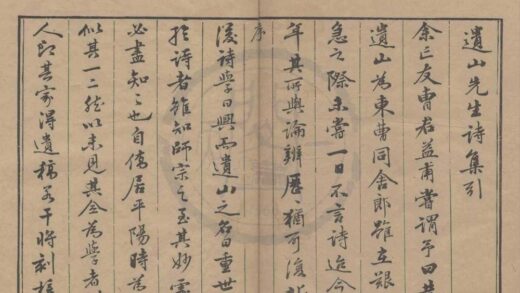 遺山先生詩集引
余亡友曹君益甫嘗謂予曰昔
遺山為東曹同舍郎雖在艱
急之際未嘗一日不言詩迨今
年其所與論辨歷〻猶可復北
序
後詩學日興而遺山之名日重世
於詩者雖知師宗之至其妙處
必盡知之也自僑居平陽時為
似其一二然以未見其全為學者
人即其家得遺稿若干將刻